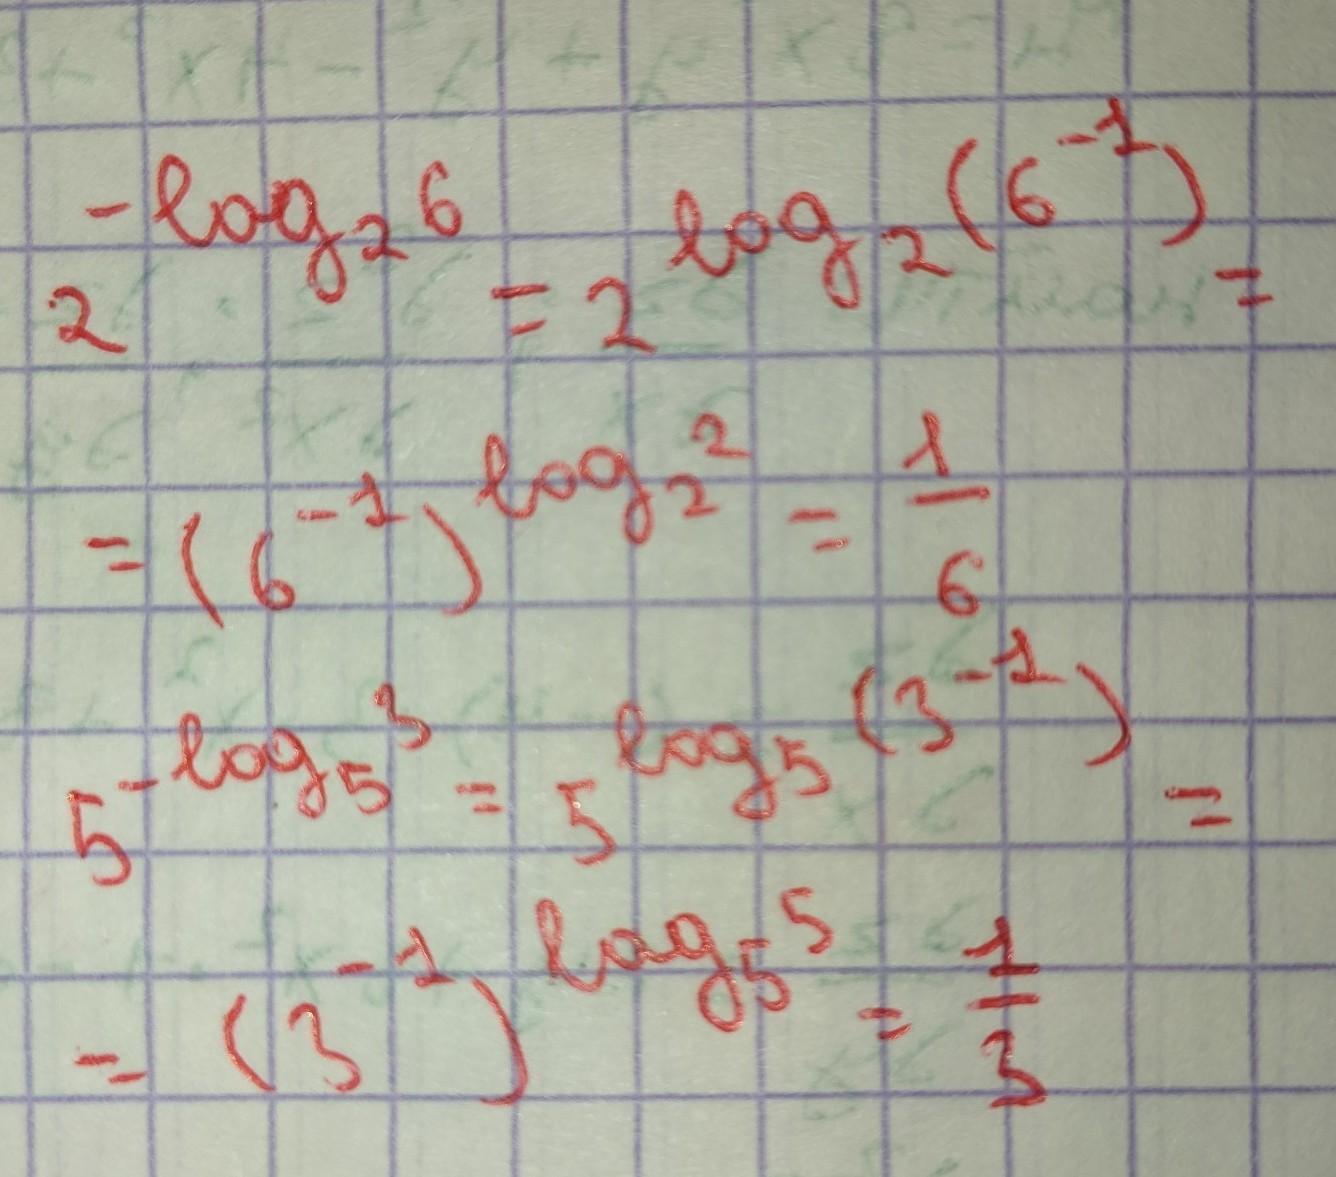 2^{-log_2 6} = 2^{log_2 (6^{-1})} =
= (6^{-1})^{log_2 2} = \frac{1}{6}
5^{-log_5 3} = 5^{log_5 (3^{-1})} =
= (3^{-1})^{log_5 5} = \frac{1}{3}